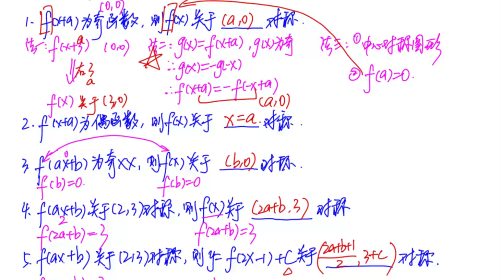 (0,0)
1. f(x+a)为奇函数, 则f(x)关于 (a,0) 对称.
法一: f(x+a) (0,0) 法二: g(x)=f(x+a), g(x)为奇 法三: ①中心对称图形
↓右移a ∴g(x)=-g(-x) ②f(a)=0.
∴f(x+a)=-f(-x+a)
f(x)关于(a,0) (a,0)
2. f(x+a)为偶函数, 则f(x)关于 x=a 对称.
3. f(ax+b)为奇XX, 则f(x)关于 (b,0) 对称.
f(b)=0. f(b)=0.
4. f(ax+b)关于(2,3)对称, 则f(x)关于 (2a+b,3) 对称
f(2a+b)=3 f(2a+b)=3
5. f(ax+b)关于(2,3)对称, 则y=f(2x-1)+c关于 (2a+b+1/2, 3+c) 对称.